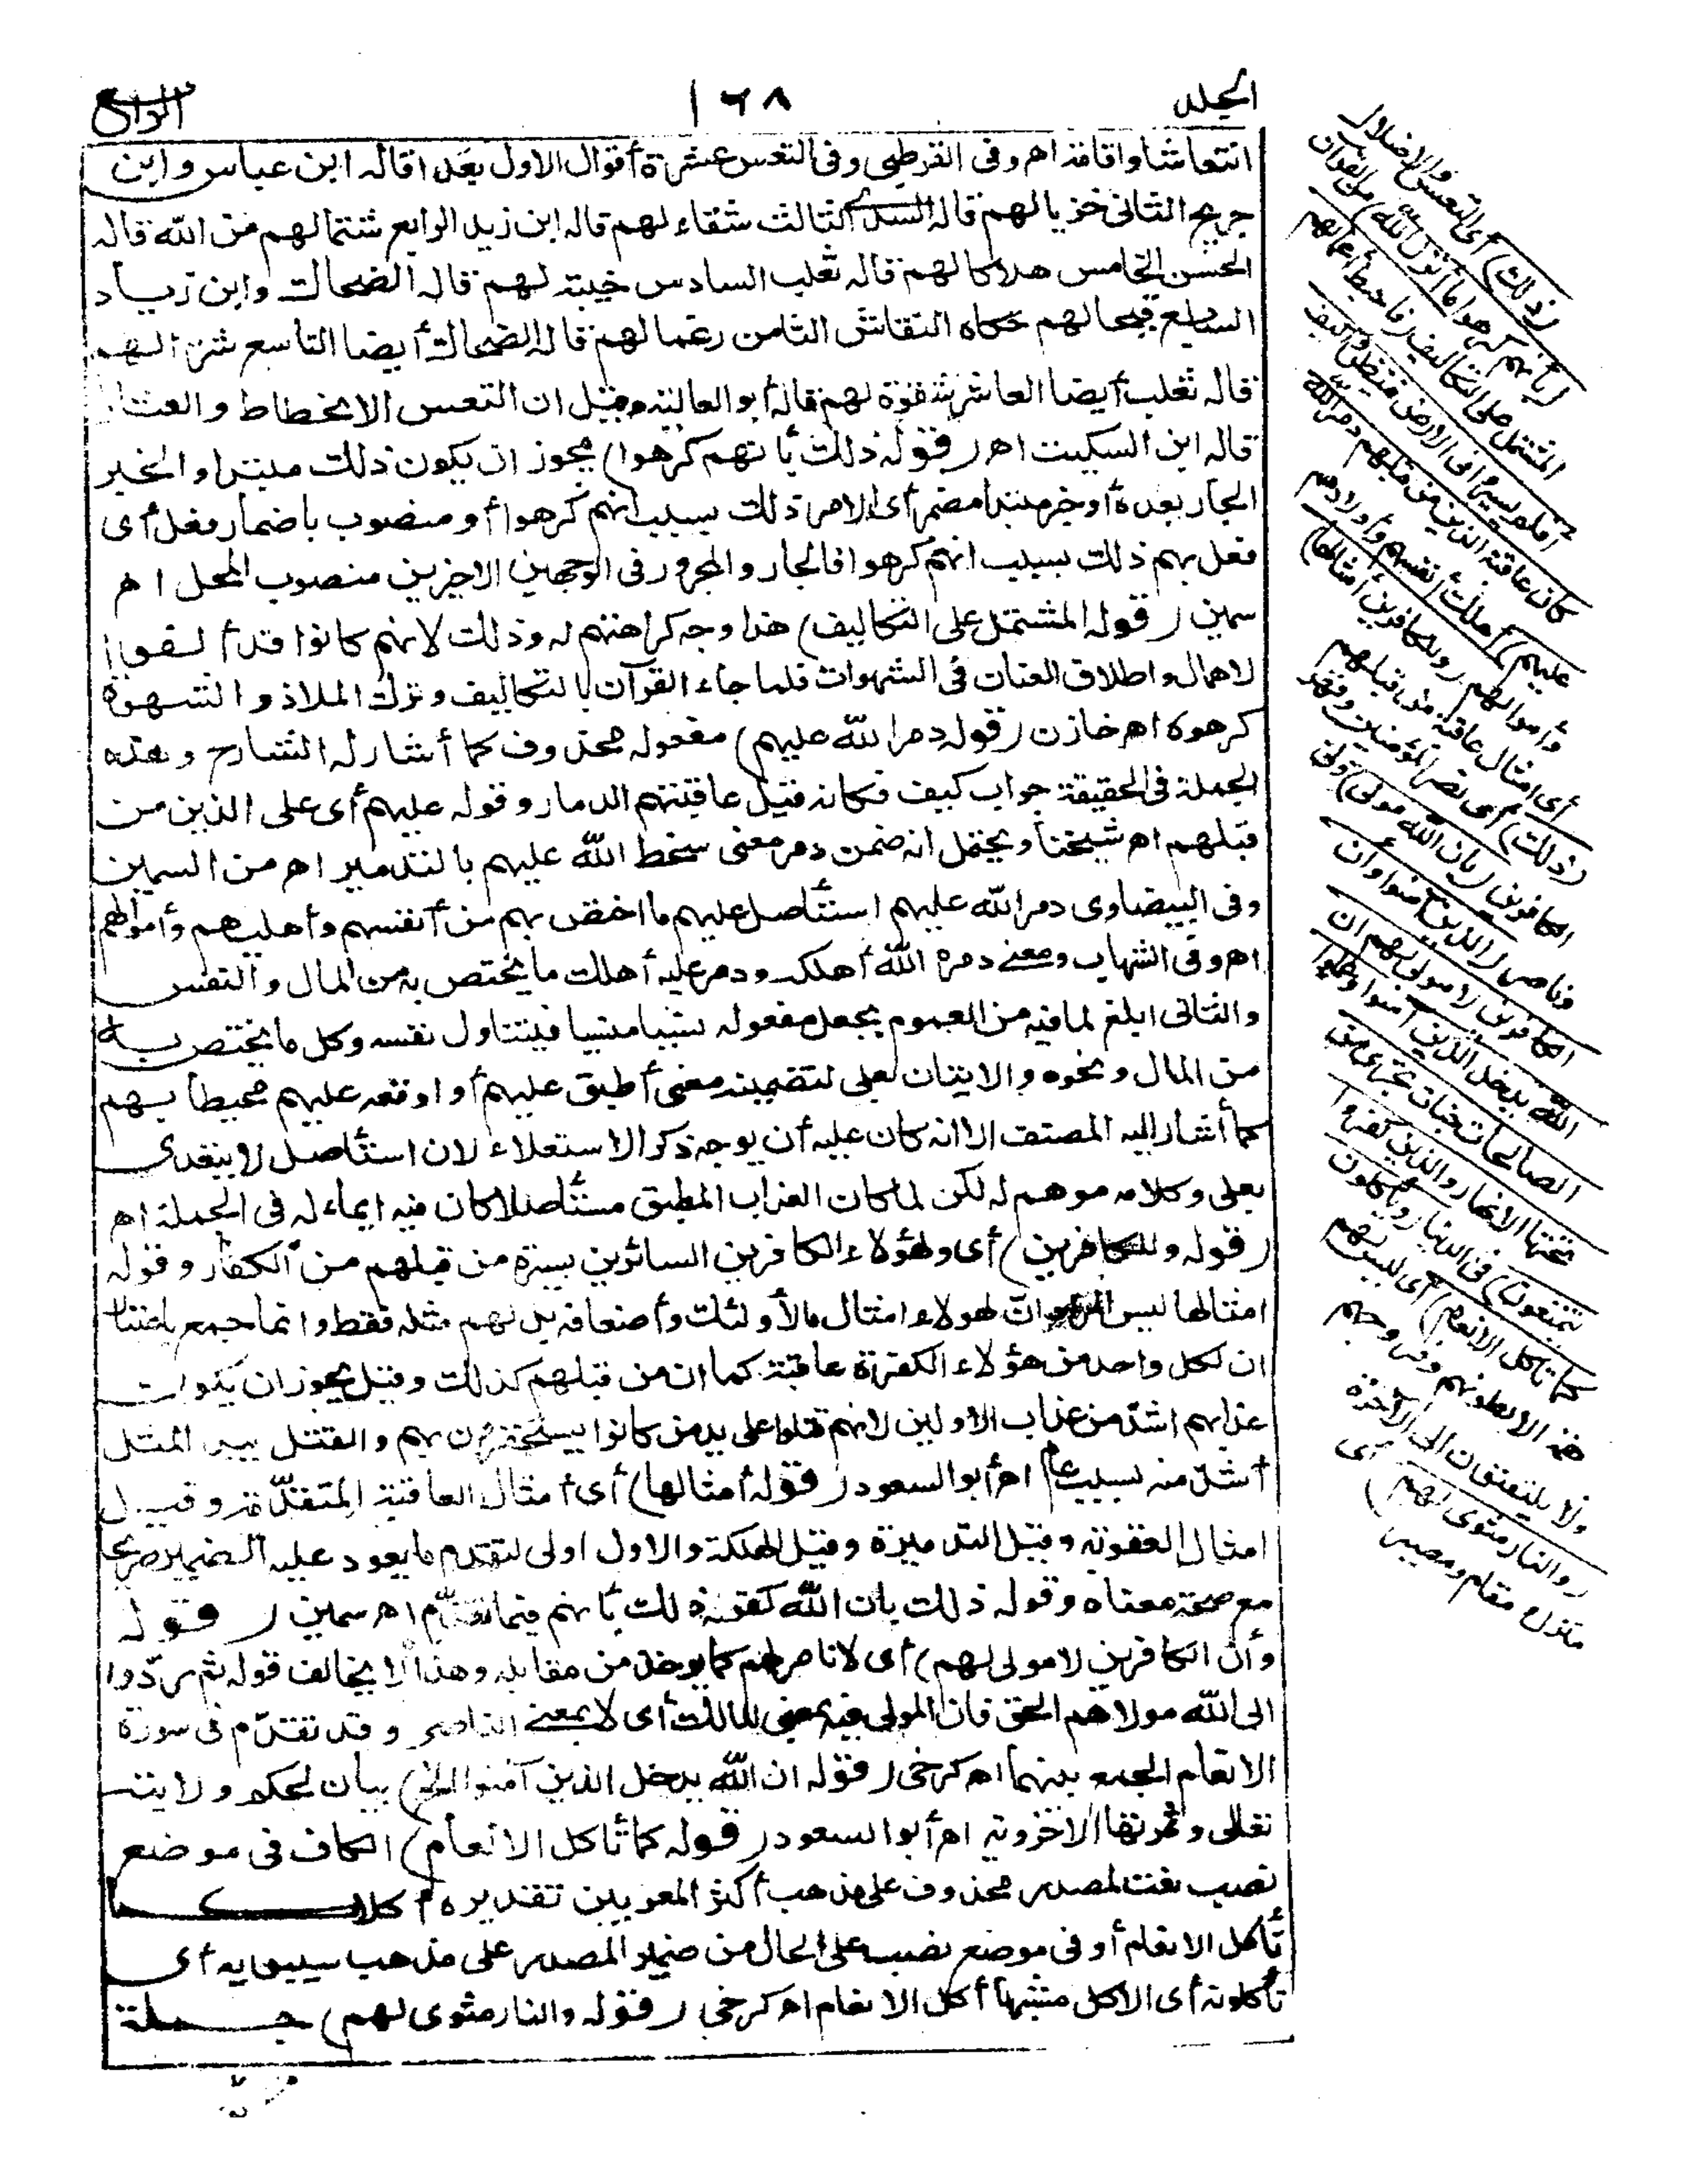 الجلد ١٦٨ الرابع
انتعاشا واقامة اهـ وفى القرطبى وفى التعس عشرة أقوال الاول بعدا قاله ابن عباس وابن
جريج الثانى خزيا لهم قاله السدى الثالث شقاء لهم قاله ابن زيد الرابع شتما لهم من الله قاله
الحسن الخامس هلاكا لهم قاله ثعلب السادس خيبة لهم قاله الضحاك وابن زياد
السابع قبحا لهم حكاه النقاش الثامن رغما لهم قاله الضحاك أيضا التاسع شرا لهم
قاله ثعلب أيضا العاشر شقوة لهم قاله أبو العالية وقيل ان التعس الانحطاط والعثار
قاله ابن السكيت اهـ (قوله ذلك بأنهم كرهوا) يجوز ان يكون ذلك مبتدا والخبر
الجار بعده أو خبر مبتدأ مضمر أى الامر ذلك بسبب انهم كرهوا أو منصوب باضمار فعل أى
فعل بهم ذلك بسبب انهم كرهوا فالجار والمجرور فى الوجهين الاخيرين منصوب المحل اهـ
سمين (قوله المشتمل على التكاليف) هذا وجه كراهتهم له وذلك لانهم كانوا قد ألفوا
لاهمال واطلاق العنان فى الشهوات فلما جاء القرآن بالتكاليف وترك الملاذ والشهوة
كرهوه اهـ خازن (قوله دمر الله عليهم) مفعوله محذوف كما أشار له الشارح وهذه
الجملة فى الحقيقة جواب كيف فكانه قيل عاقبتهم الدمار وقوله عليهم أى على الذين من
قبلهم اهـ شيخنا ويحتمل انه ضمن دمر معنى سخط الله عليهم بالتدمير اهـ من السمين
وفى البيضاوى دمر الله عليهم استأصل عليهم ما اختص بهم من أنفسهم وأهليهم وأموالهم
اهـ وفى الشهاب ومعنى دمره الله أهلكه ودمر عليه أهلك ما يختص به من المال والنفس
والثانى ابلغ لما فيه من العموم بجعل مفعوله نسيا منسيا فيتناول نفسه وكل ما يختص به
من المال ونحوه والاتيان بعلى لتضمينه معنى أطبق عليهم أو اوقعه عليهم محيطا بهم
كما أشار اليه المصنف الا انه كان عليه أن يوجه ذكر الاستعلاء لان استأصل لا يتعدى
بعلى وكلامه موهم له لكن لما كان العذاب المطبق مستأصلا كان فيه ايماء له فى الجملة اهـ
(قوله وللكافرين) أى ولهؤلاء الكافرين السائرين بسيرة من قبلهم من الكفار وقوله
امثالها ليس المراد ان لهولاء امثال مالأولئك وأضعافه بل لهم مثله فقط وانما جمع باعتبار
ان لكل واحد من هؤلاء الكفرة عاقبة كما ان من قبلهم كذلك وقيل يجوز ان يكون
عذابهم اشد من عذاب الاولين لانهم قتلوا على يد من كانوا يستحقرون بهم والقتل بيد المثل
أشد منه بسبب عام اهـ أبو السعود (قوله أمثالها) أى أمثال العاقبة المتقدمة وقيل
امثال العقوبة وقيل التدميرة وقيل الهلكة والاول اولى لتقدم ما يعود عليه الضمير صريحا
مع صحة معناه وقوله ذلك بان الله كقوله ذلك بأنهم فيما تقدم اهـ سمين (قوله
وأن الكافرين لا مولى لهم) أى لا ناصر لهم كما يوخذ من مقابله وهذا لا يخالف قوله ثم ردوا
الى الله مولاهم الحق فان المولى فيه بمعنى المالك أى لا بمعنى الناصر وقد تقدم فى سورة
الانعام الجمع بينهما اهـ كرخى (قوله ان الله يدخل الذين آمنوا الخ) بيان لحكم ولايته
تعالى وثمرتها الاخروية اهـ أبو السعود (قوله كما تأكل الانعام) الكاف فى موضع
نصب نعت لمصدر محذوف على مذهب أكثر المعربين تقديره أكلا كما
تأكل الانعام أو فى موضع نصب على الحال من ضمير المصدر على مذهب سيبويه أى
تأكلونه أى الاكل مشبها أكل الانعام اهـ كرخى (قوله والنار مثوى لهم) جملة
(ذلك) أى التعس والاضلال
(بأنهم كرهوا ما أنزل الله) من القرآن
المشتمل على التكاليف (فاحبط أعمالهم
أفلم يسيروا فى الارض فينظروا كيف
كان عاقبة الذين من قبلهم دمر الله
عليهم) أهلك أنفسهم وأولادهم
وأموالهم (وللكافرين أمثالها)
أى امثال عاقبة من قبلهم
(ذلك) أى نصر المؤمنين وقهر
الكافرين (بان الله مولى) ولى
وناصر (الذين آمنوا وان
الكافرين لا مولى لهم ان
الله يدخل الذين آمنوا وعملوا
الصالحات جنات تجرى من
تحتها الانهار والذين كفروا
يتمتعون) فى الدنيا (ويأكلون
كما تاكل الانعام) أى ليس لهم
همة الا بطونهم وفروجهم
ولا يلتفتون الى الآخرة
(والنار مثوى لهم) أى
منزل ومقام ومصير